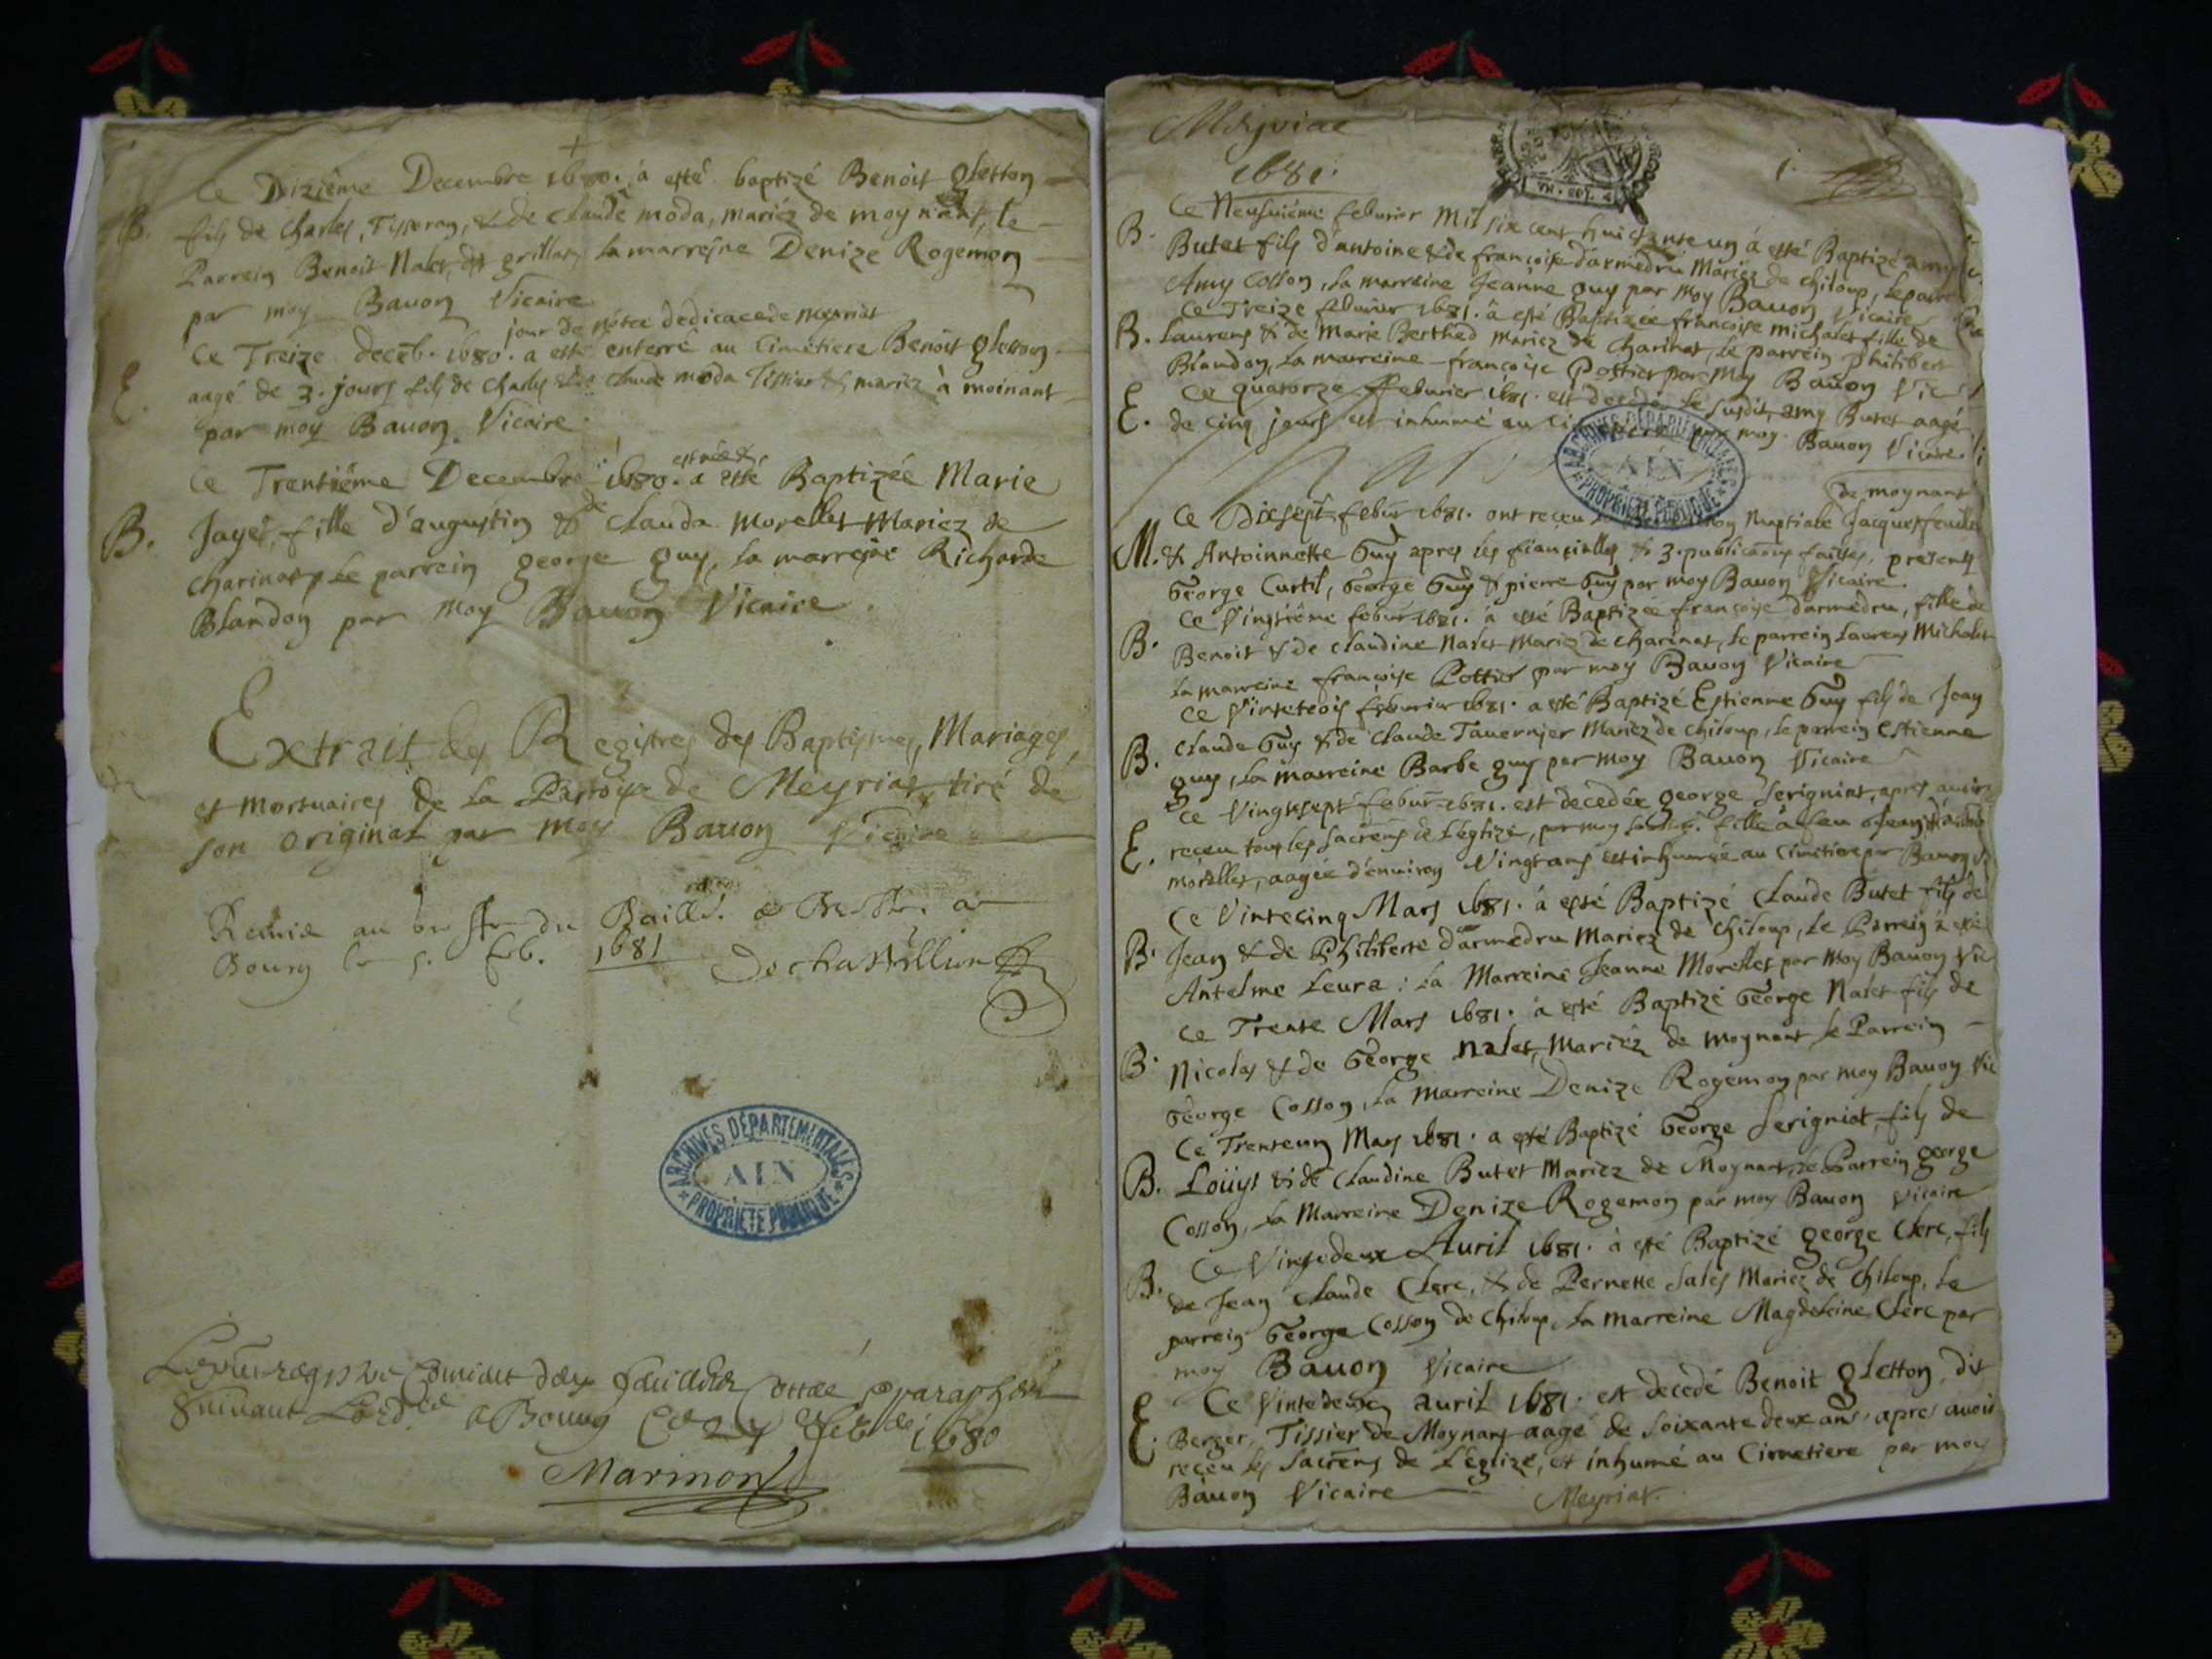 Ce Dizième Decembre 1680. à esté baptizé Benoit gletton
B. fils de Charles, Tisseran, & de Claude moda, mariéz de moynant, le
Parrein Benoit Nalet, de grillat, la marrejne Denize Rogemon
par moy Bauon Vicaire
jour de nôtre dedicace de meyriat
Ce Treize deceb. 1680. a esté enterré au Cimetiere Benoit gletton
E. aagé de 3. jours fils de Charles & de Claude moda Tissier & mariez à moinant
par moy Bauon Vicaire.
Ce Trentième Decembre 1680. a esté Baptizée Marie
B. Jayet, fille d'augustin & de Clauda morellet mariez de
Charinat, Le parrein george guy, la marrejne Richarde
Blandon par moy Bauon Vicaire.
Extrait des Registres des Baptismes, Mariages,
et mortuaires de la Parroisse de Meyriat, tiré de
son original par moy Bauon Vicaire
Remis au greffe du Baill.
Bourg le 5. feb. 1681
De chastillion
suivant a Bourg ce 1680
Marinon
ARCHIVES DÉPARTEMENTALES
AIN
PROPRIÉTÉ PUBLIQUE
Meyriat
1681.
Ce Neufuiéme feburier Mil six cent huictante un á esté Baptizé amy
B. Butet fils d'antoine & de françoise d'armedru Mariéz de chiloup, le parrein
Amy Cosson, la marreine Jeanne guy par moy Bauon Vicaire
Ce Treize feburier 1681. á esté Baptizée francoise michalet fille de
B. Laurens & de Marie Berthed mariez de Charinat, le parrein Philibert
Blandon, la marreine françoise Pottier par moy Bauon Vic
Ce quatorze feburier 1681. est decedé le susdit amy Butet aagé
E. de cinq jours est inhumé au moy Bauon Vicaire.
ARCHIVES DÉPARTEMENTALES
AIN
PROPRIÉTÉ PUBLIQUE
de moynant
Ce Dixsept febur 1681. ont receu la nuptiale Jacques feuillet
M. & Antoinnette Guy apres les fiancialles & 3. publications faites, presents
George Curtil, George Guy & pierre Guy par moy Bauon Vicaire.
Ce Vingtième febur 1681. á esté Baptizée françoise darmedru, fille de
B. Benoit & de Claudine Nalet Mariez de Charinat, le parrein Laurens Michalet
La marreine françoise Pottier par moy Bauon Vicaire
Ce Vintetrois feburier 1681. a esté Baptizé Estienne Guy fils de Jean
B. Claude Guy & de Claude Tauernier Mariéz de chiloup, le parrein Estienne
guy, la marreine Barbe guy par moy Bauon Vicaire
Ce Vingtsept febur 1681. est decedée george Serigniat, apres auoir
E. receu tous les Sacrens de L'eglize, fille à feu Jean
morellet, aagée d'enuiron Vingt ans est inhumée au Cimetiere par Bauon
Ce Vintecinq Mars 1681. á esté Baptizé Claude Butet fils de
B. Jean & de Philiberte darmedru Mariez de Chiloup, Le Parrein à esté
Antelme Leura: La Marreine Jeanne Morellet par Moy Bauon Vic
Ce Trente Mars 1681. á esté Baptizé George Nalet fils de
B. Nicolas & de George Nalet, Mariéz de moynant le Parrein
George Cosson, la Marreine Denize Rogemon par moy Bauon Vic
Ce Trenteun Mars 1681. a esté Baptizé George Serigniat, fils de
B. Loüys & de Claudine Butet Mariez de Moynant, Le Parrein george
Cosson, la Marreine Denize Rogemon par moy Bauon Vicaire
Ce Vintedeux Auril 1681. á esté Baptizé george Clerc, fils
B. de Jean Claude Clerc, & de Pernette Sales Mariez de Chiloup, Le
parrein George Cosson de Chiloup, la marreine Magdeleine Clerc par
moy Bauon Vicaire
Ce Vintedeux auril 1681. est decedé Benoit gletton, dit
E. Berger, Tissier de Moynant aagé de soixante deux ans, apres auoir
reçeu les Sacrens de L'eglize, et inhumé au Cimetiere par moy
Bauon Vicaire
Meyriat.